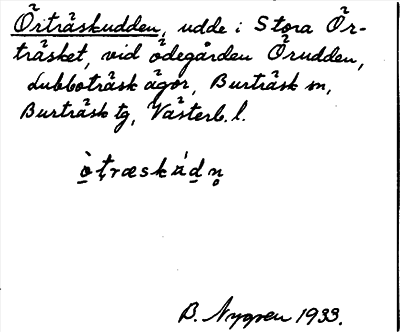 Örträskudden, udde i Stora Ör-
träsket, vid ödegården Örudden,
Lubboträsk ägor, Burträsk sn,
Burträsk tg, Västerb. l.
B. Nygren 1933.